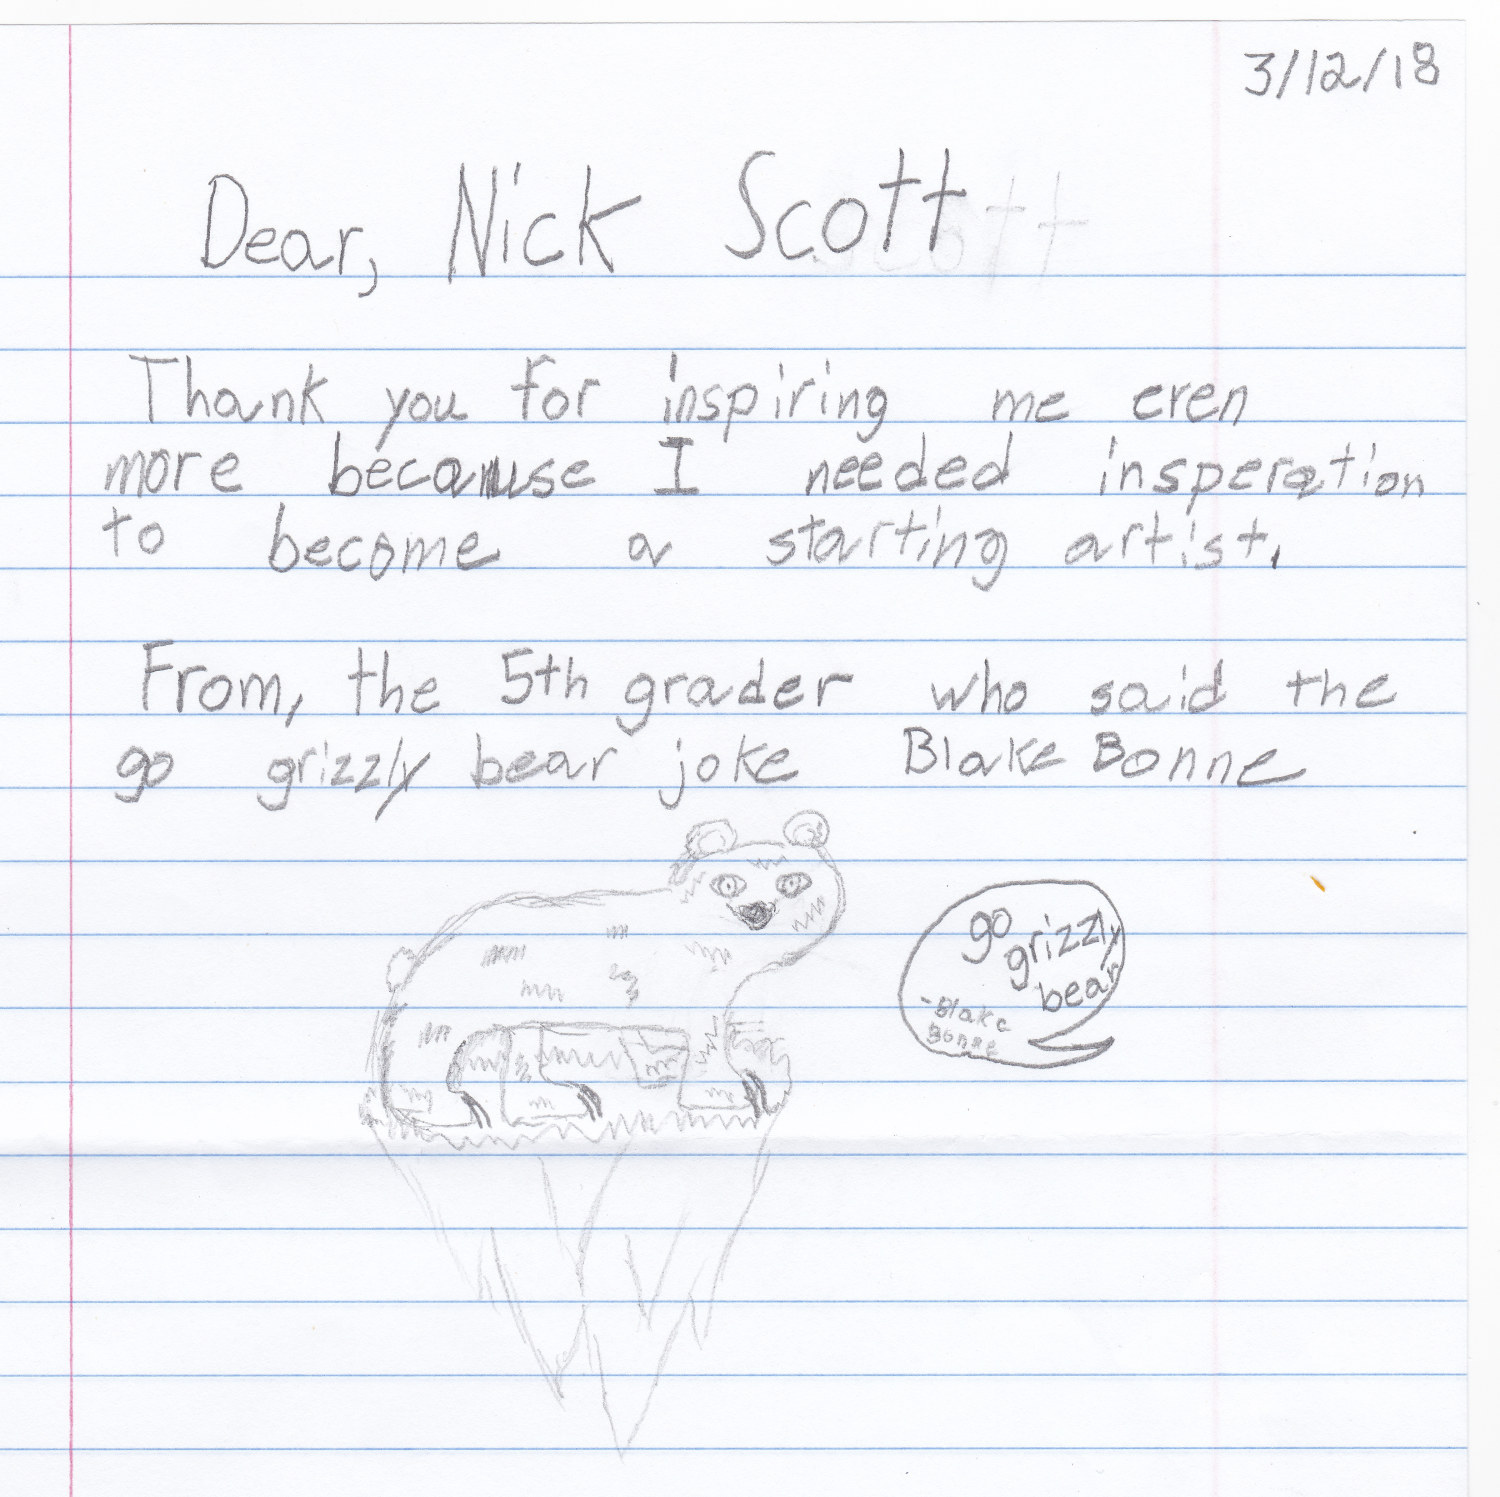 3/12/18
Dear, Nick Scott
Thank you for inspiring me even
more because I needed insperation
to become a starting artist.
From, the 5th grader who said the
go grizzly bear joke Blake Bonne
go
grizzly
bear
-Blake
Bonne